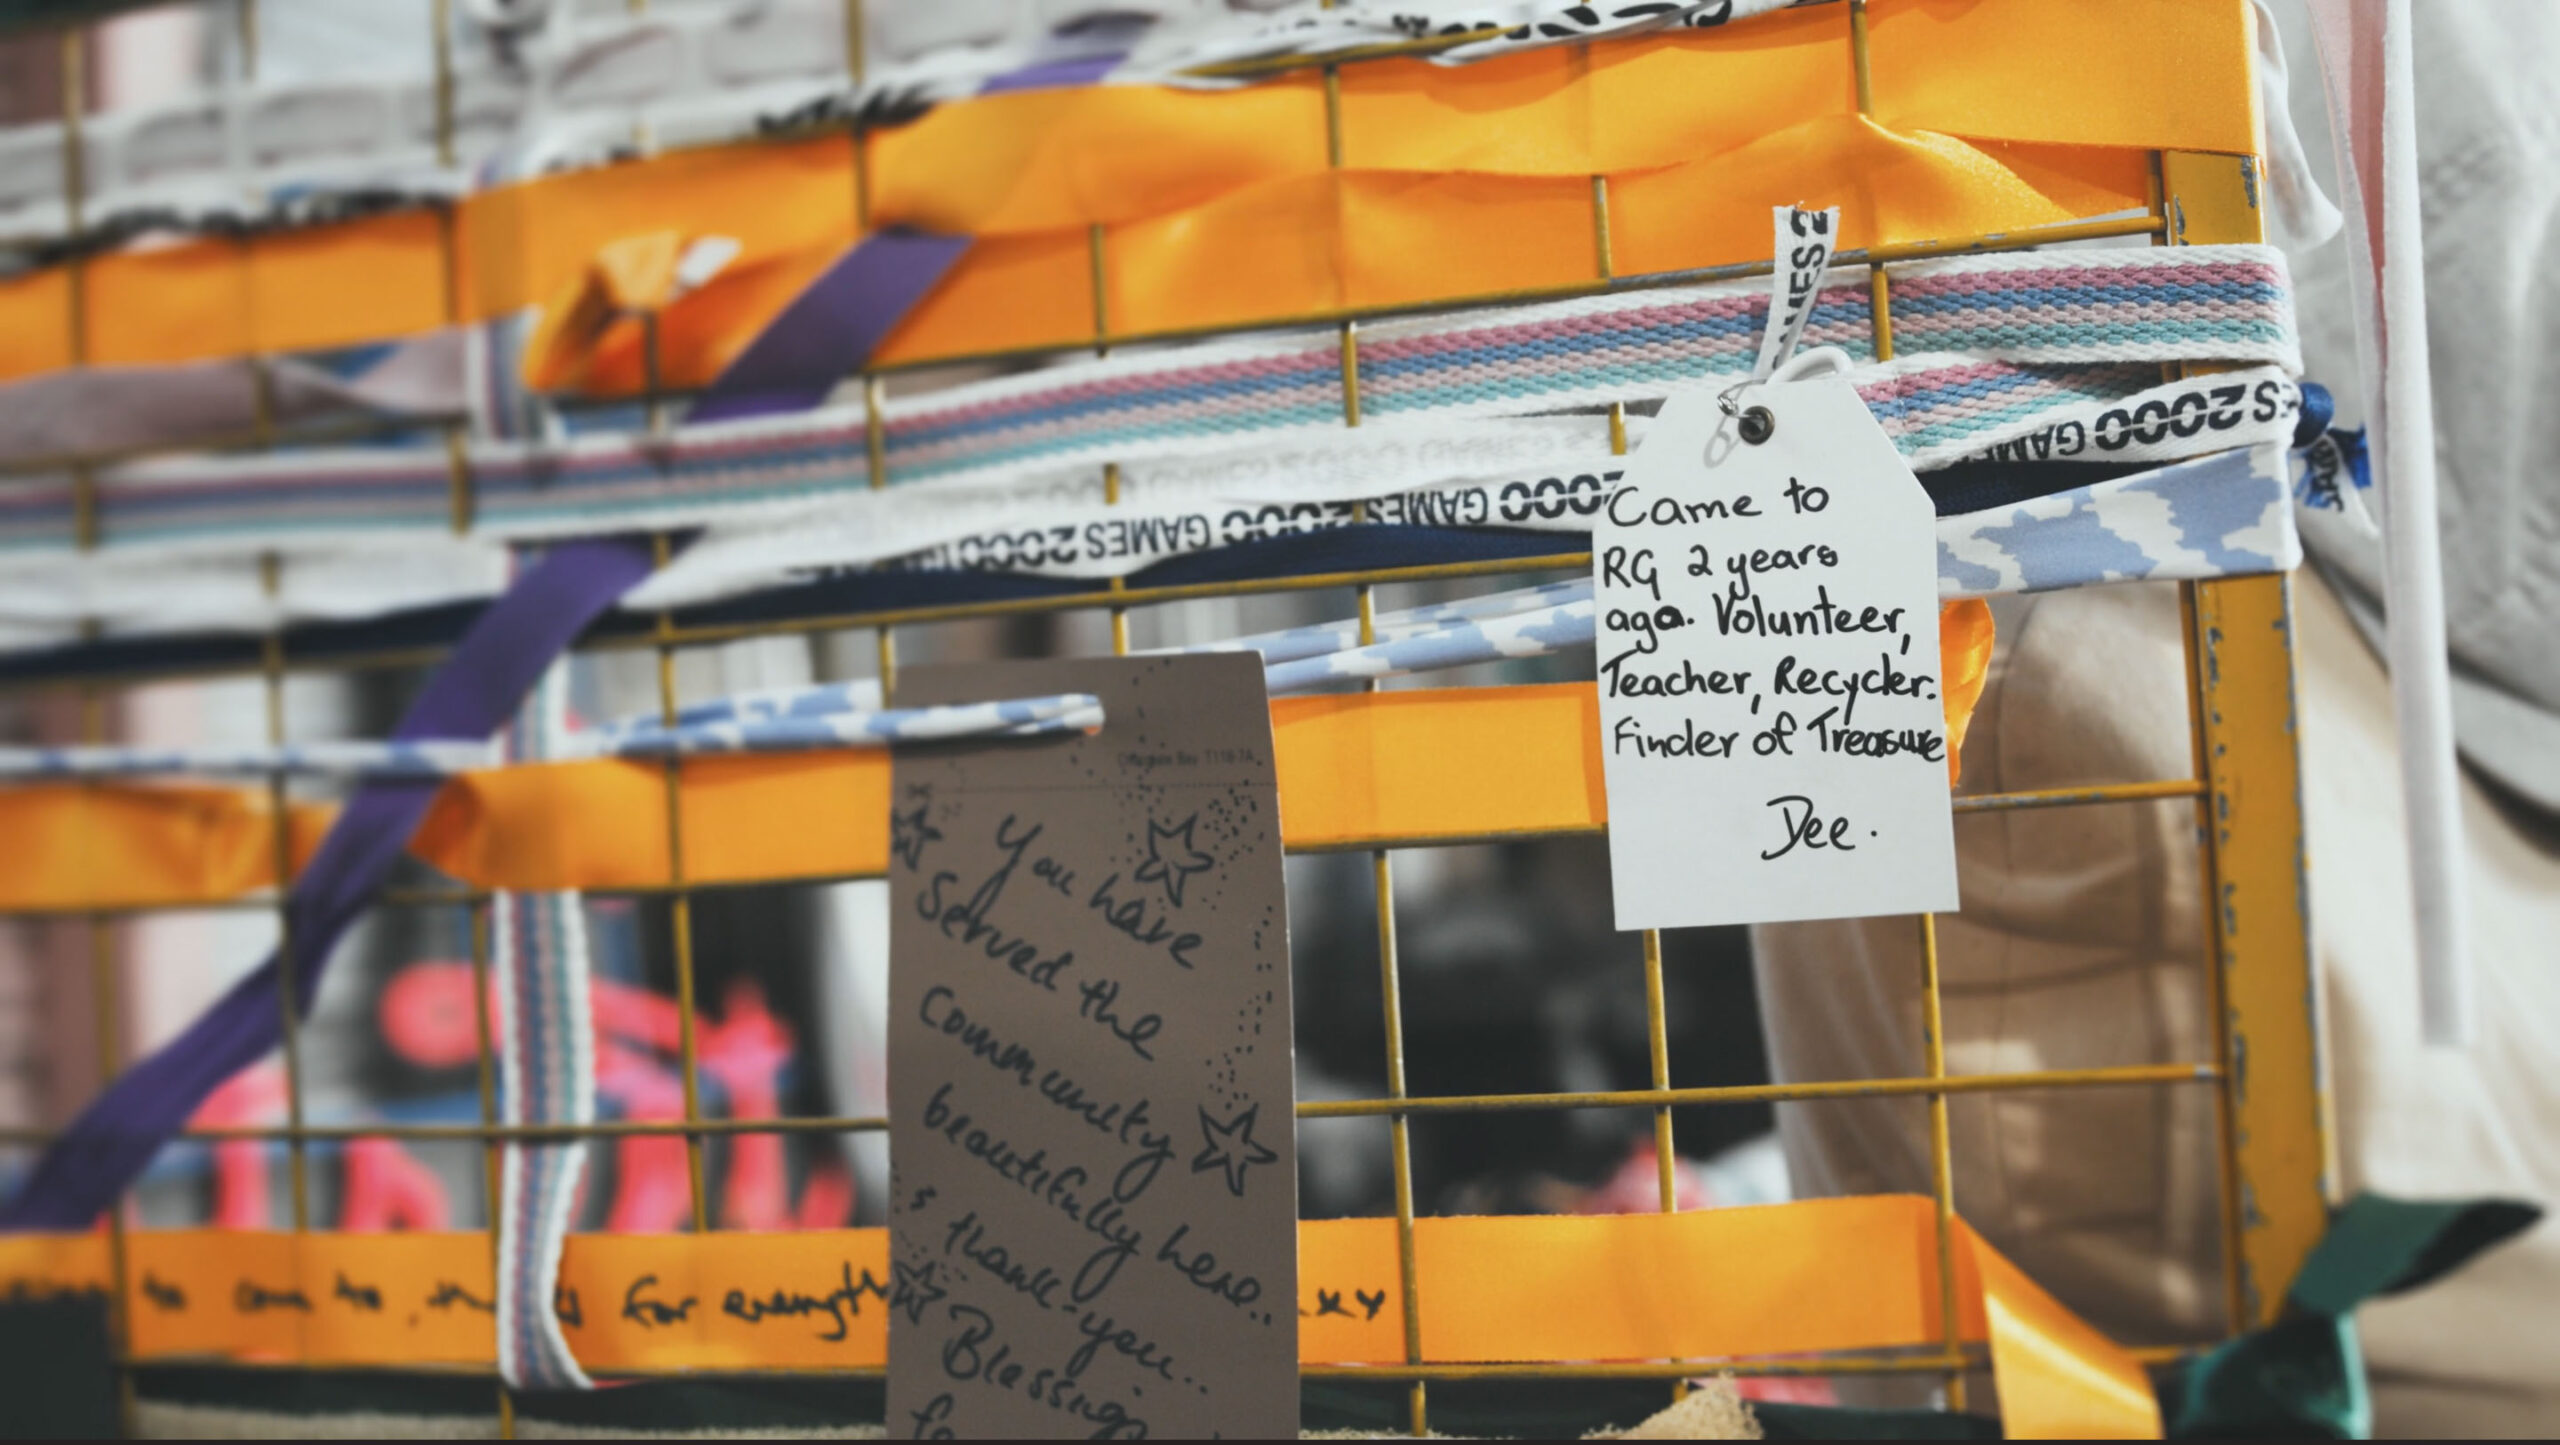 GAMES 2
S 2000 GAMES
2000 GAMES 2000 GAMES 2000
Came to
RG 2 years
ago. Volunteer,
Teacher, Recycler.
Finder of Treasure
Dee.
You have
Served the
Community
beautifully here..
thank-you..
Blessings
for everyth
xy